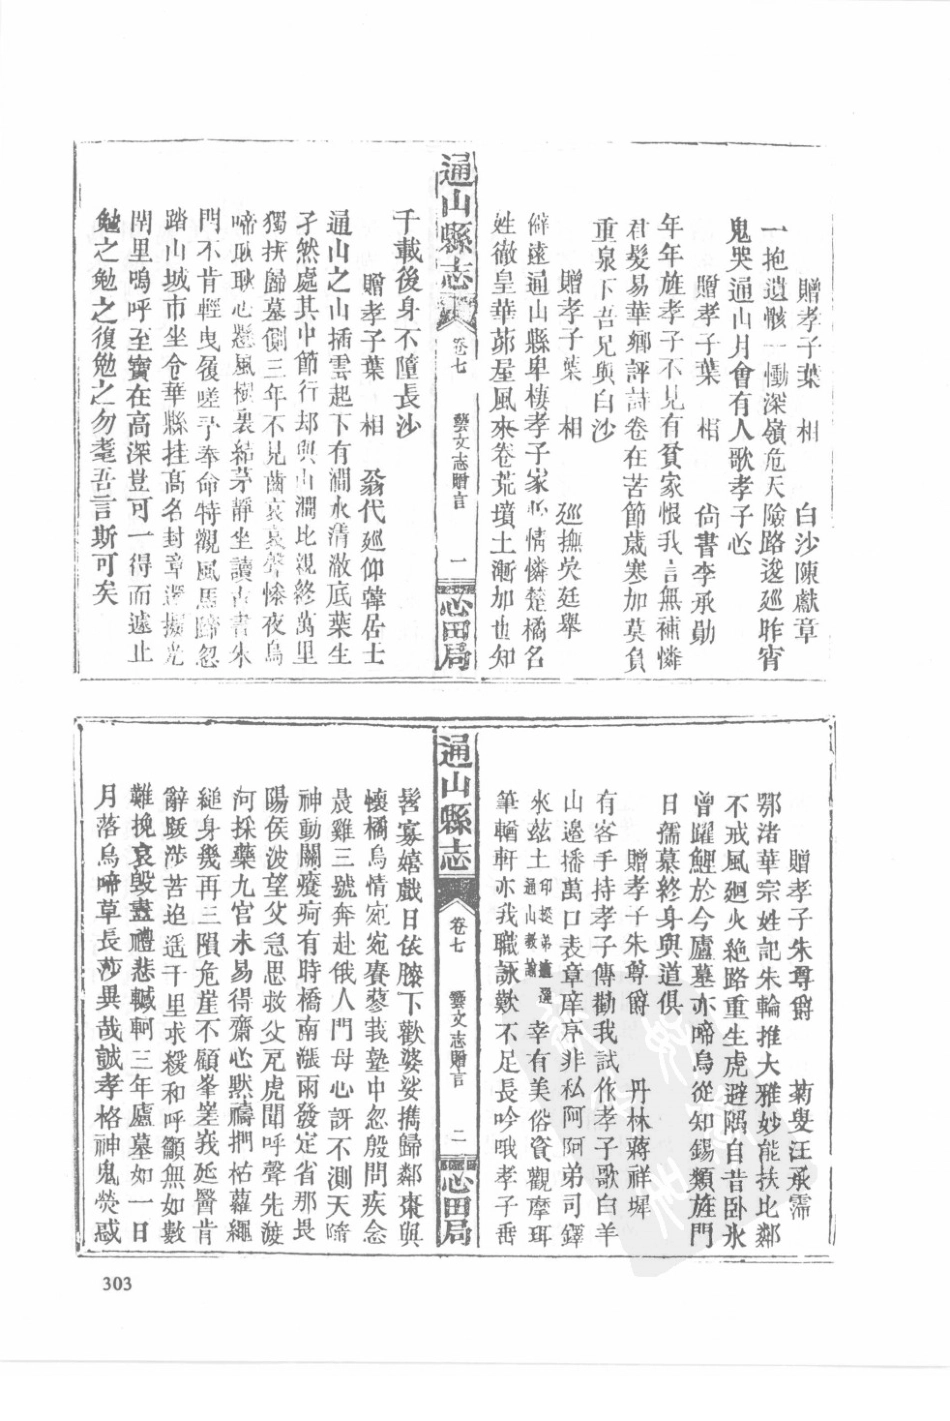 贈孝子葉　相　　白沙陳獻章
一抱遺骸一慟深嶺危天險路逡廵昨宵
鬼哭通山月會有人歌孝子心
贈孝子葉　相　　尙書李承勛
年年旌孝子不見有貧家恨我言無補憐
君髮易華鄉評詩卷在苦節歲寒加莫負
重泉下吾兄與白沙
贈孝子葉　相　　廵撫吳廷舉
僻遠通山縣卑棲孝子家心情憐楚橘名
姓徹皇華茆屋風來卷荒墳土漸加也知
通山縣志
卷七
藝文志贈言
一
心田局
千載後身不隨長沙
贈孝子葉　相　　翁代廵仰韓居士
通山之山插雲起下有澗水清澈底葉生
孑然處其中節行却與山澗比親終萬里
獨扶歸墓側三年不見齒哀哀聲慘夜烏
啼耿耿心懸風樹裏結茅靜坐讀古書朱
門不肯輕曳履嗟予奉命特觀風馬蹄忽
踏山城市坐令華縣挂高名封章光
閭里嗚呼至寶在高深豈可一得而遽止
勉之勉之復勉之勿耄吾言斯可矣
贈孝子朱尊爵　　菊叟汪承霈
鄂渚華宗姓記朱輪推大雅妙能扶比鄰
不戒風廻火絶路重生虎避隅自昔卧氷
曾躍鯉於今廬墓亦啼烏從知錫類旌門
日孺慕終身與道俱
贈孝子朱尊爵　　丹林蔣祥墀
有客手持孝子傳勸我試作孝子歌白羊
山邊播萬口表章庠序非私阿阿弟司鐸
來兹土通山教諭幸有美俗資觀摩珥
筆輶軒亦我職詠歎不足長吟哦孝子垂
通山縣志
卷七
藝文志贈言
二
心田局
髫寡嬉戲日依膝下歡婆娑攜歸鄰棗與
懷橘烏情宛宛賡蓼莪塾中忽殷問疾念
晨雞三號奔赴俄人門母心訝不測天隨
神動關癢疴有時橋南漲雨發定省那畏
陽侯波望父急思救父兕虎聞呼聲先渡
河採藥九官未易得齋心默禱捫枯蘿繩
縋身幾再三隕危崖不顧峯嵳峩延醫肯
辭跋涉苦迢遥千里求緩和呼籲無如數
難挽哀毁盡禮悲轗軻三年廬墓如一日
月落烏啼草長莎異哉誠孝格神鬼熒惑
303